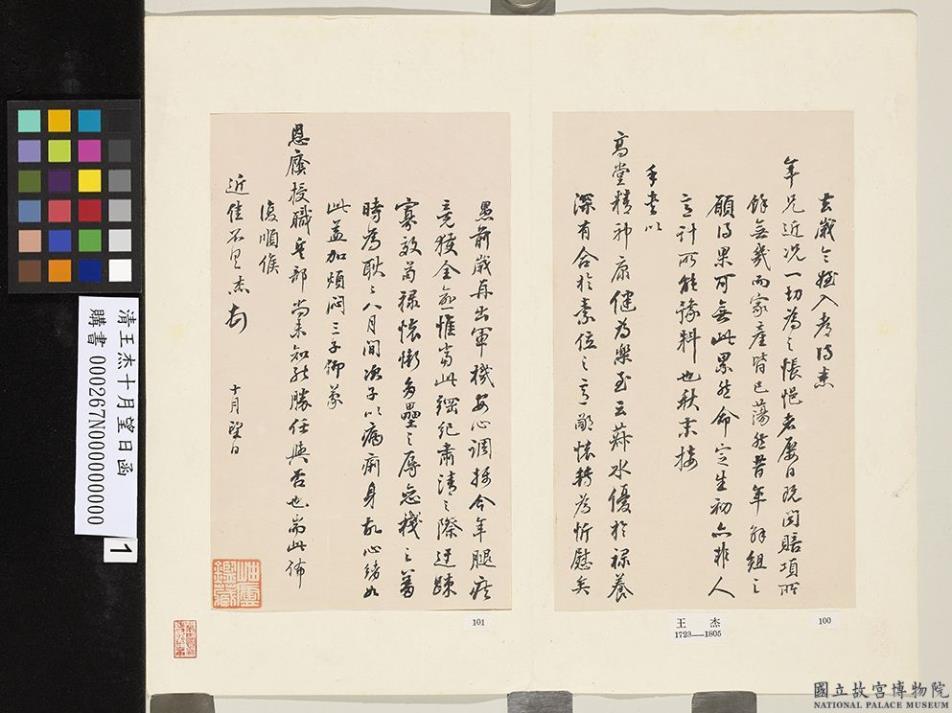 去歲令姪入考得悉
年兄近況一切為之悵悒者屢日既聞賠項所
餘無幾而家產皆已蕩然昔年解組之
願得果可無此累然命定生初亦非人
意計所能豫料也秋末接
手書以
高堂精神康健為樂至云菽水優於祿養
深有合於素位之意鄙懷轉為忻慰矣
愚前歲再出軍機安心調攝今年腿疾
竟獲全愈惟當此綱紀肅清之際迂疎
寡效苟祿懷慚多壘之辱忘棧之
時為耿耿八月間次子以病痢身故心緒如
此益加煩悶三子仰蒙
恩廕授職兵部尚未知能勝任與否也耑此佈
復順候
近佳不具杰
十月望日
王杰
1723—1805
100
101
清王杰十月望日函
購書 000267N000000000
1
國立故宮博物院
NATIONAL PALACE MUSEUM